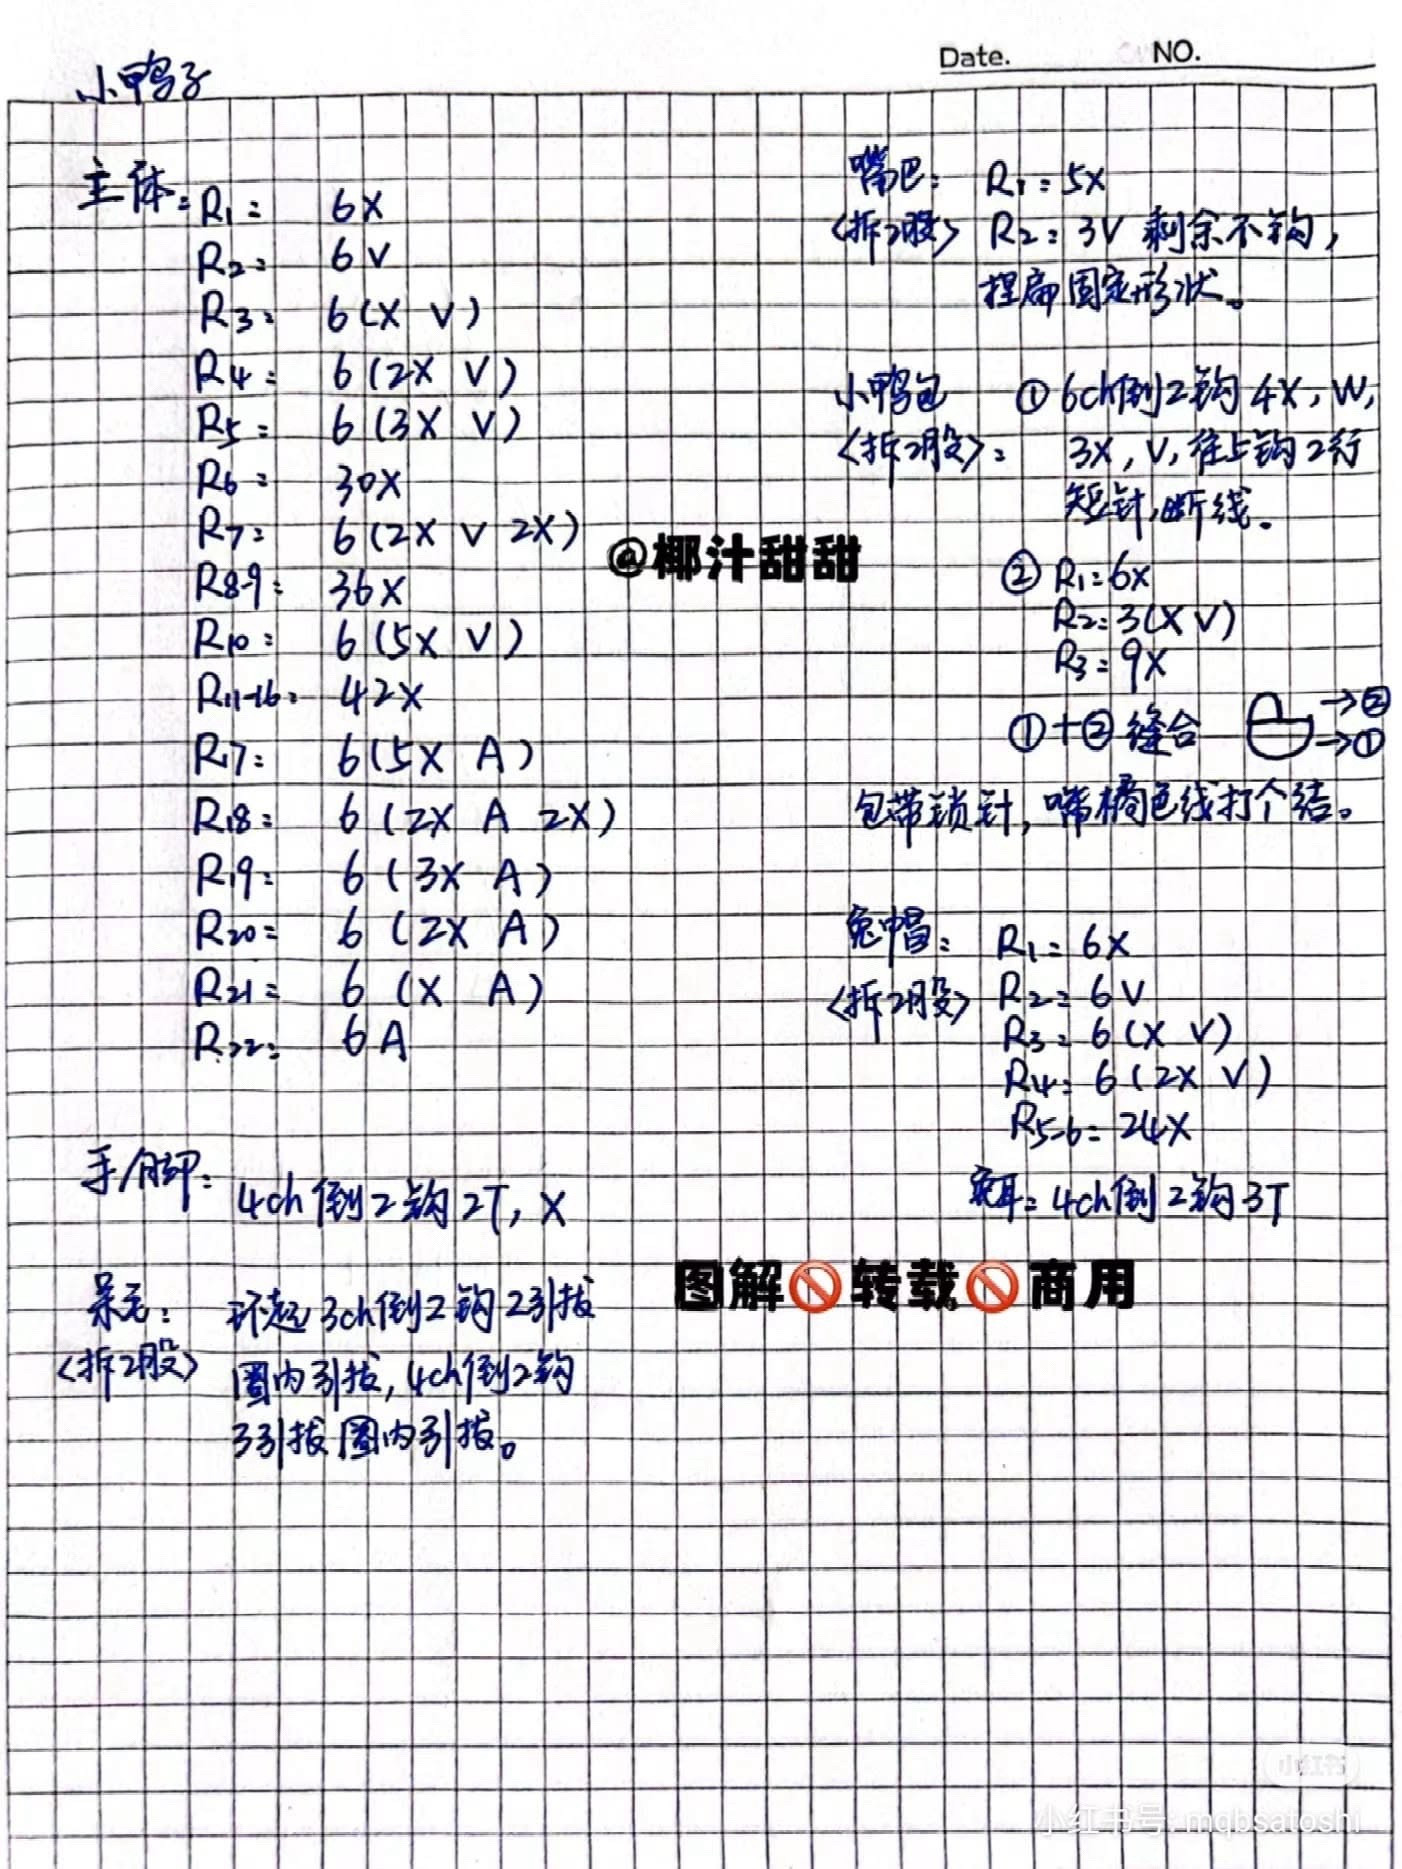 Date. NO.
小鸭子
主体: R1: 6X
R2: 6V
R3: 6(X V)
R4: 6(2X V)
R5: 6(3X V)
R6: 30X
R7: 6(2X V 2X)
R8-9: 36X
R10: 6(5X V)
R11-16: 42X
R17: 6(5X A)
R18: 6(2X A 2X)
R19: 6(3X A)
R20: 6(2X A)
R21: 6(X A)
R22: 6A
手/脚: 4ch倒2钩2T, X
呆毛: 环起3ch倒2钩2引拔
<拆2股> 圈内引拔, 4ch倒2钩
3引拔圈内引拔。
嘴巴: R1: 5X
<拆2股> R2: 3V 剩余不钩,
捏扁固定形状。
小鸭包 ① 6ch倒2钩4X, W,
<拆2股>: 3X, V, 往上钩2行
短针,断线。
② R1=6X
R2=3(X V)
R3=9X
①+②缝合 →②
→①
包带锁针, 嘴橘色线打个结。
兔帽: R1=6X
<拆2股> R2=6V
R3=6(X V)
R4=6(2X V)
R5-6=24X
兔耳=4ch倒2钩3T
@椰汁甜甜
图解🚫转载🚫商用
小红书
小红书号: mqbsatoshi